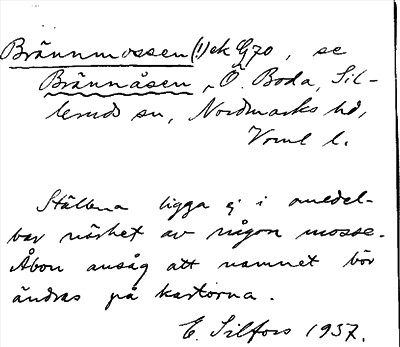 Brännmossen (!) ek G70, se
Brännåsen, Ö. Boda, Sil-
lerud sn, Nordmarks hd,
Vrml l.
Ställena ligga ej i omedel-
bar närhet av någon mosse.
Åbon ansåg att namnet bör
ändras på kartorna.
E. Silfors 1937.